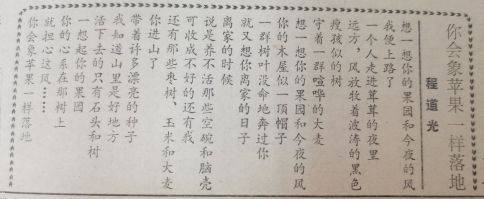 你会象苹果一样落地
程道光
想一想你的果园和今夜的风
我便上路了
一个人走进茸茸的夜里
远方，风放牧着波涛的黑色
瘦孩似的树
守着一群喧哗的大麦
想一想你的果园和今夜的风
你的木屋似一顶帽子
一群树叶没命地奔过你
就又想你离家的日子
离家的时候
说是养不活那些空碗和脑壳
可收成不好的还有我
还有那些枣树、玉米和大麦
你进山了
带着许多漂亮的种子
我知道山里是好地方
活下去的只有石头和树
一想起你的果园
你的心系在那树上
就担心这风……
你会象苹果一样落地